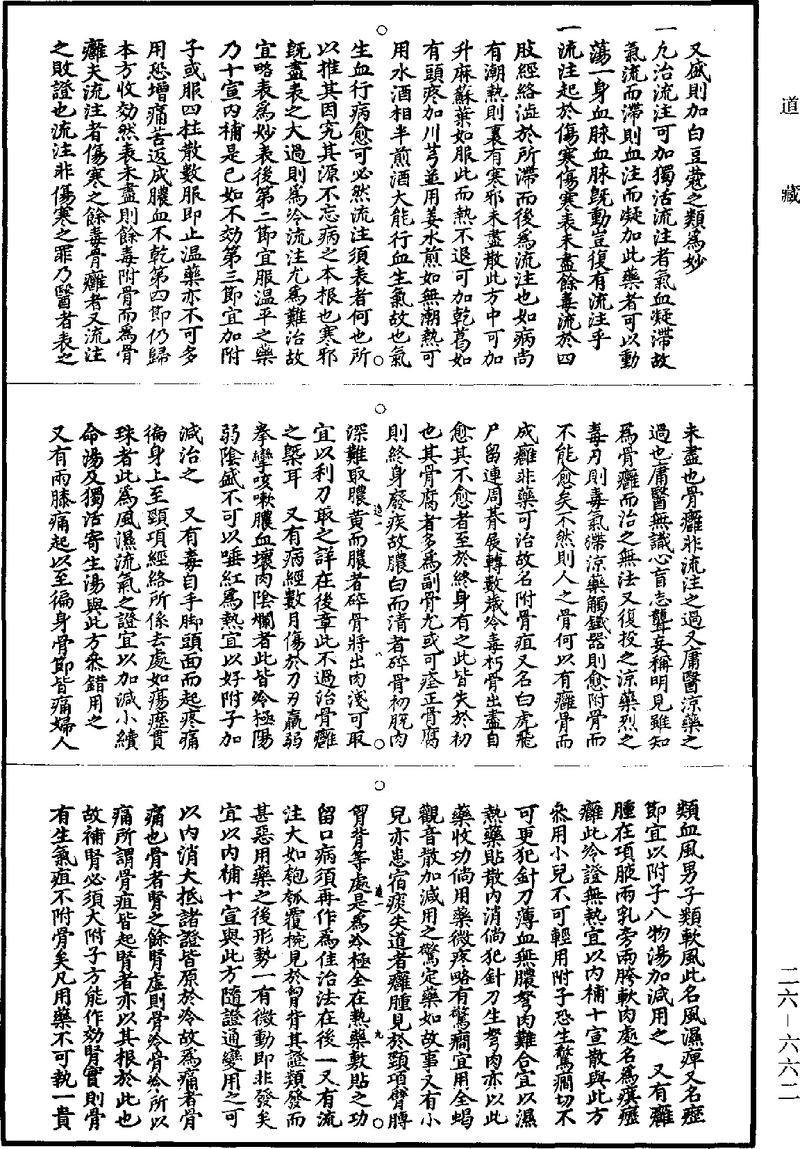 道藏
又盛則加白豆蔻之類為妙
一凡治流注可加獨活流注者氣血凝滯故
氣流而滯則血注而凝加此藥者可以動
蕩一身血脉血脉既動豈復有流注乎
一流注起於傷寒傷寒表未盡餘毒流於四
肢經絡澁於所滯而後為流注也如病尚
有潮熱則裏有寒邪未盡散此方中可加
升麻蘇葉如服此而熱不退可加乾葛如
有頭疼加川芎並用姜水煎如無潮熱可
用水酒相半煎酒大能行血生氣故也氣
生血行病愈可必然流注須表者何也所
以推其因究其源不忘病之本根也寒邪
既盡表之大過則為冷流注尤為難治故
宜略表為妙表後第二節宜服温平之藥
乃十宣内補是已如不効第三節宜加附
子或服四柱散數服即止温藥亦不可多
用恐增痛苦返成膿血不乾第四節仍歸
本方收効然表未盡則餘毒附骨而為骨
癰夫流注者傷寒之餘毒骨癰者又流注
之敗證也流注非傷寒之罪乃醫者表之
未盡也骨癰非流注之過又庸醫涼藥之
過也庸醫無識心盲志聾妄稱明見雖知
為骨癰而治之無法又復投之涼藥烈之
毒刃則毒氣滯涼藥觸鐵器則愈附骨而
不能愈矣不然則人之骨何以有癰骨而
成癰非藥可治故名附骨疽又名白虎飛
尸留連周朞展轉數歲冷毒朽骨出盡自
愈其不愈者至於終身有之此皆失於初
也其骨腐者多為副骨尤或可痊正骨腐
則終身廢疾故膿白而清者碎骨初脫肉
深難取膿黄而膿者碎骨將出肉淺可取
宜以利刀取之詳在後章此不過治骨癰
之槩耳　又有病經數月傷於刀刃羸弱
拳攣咳嗽膿血壞肉陰爛者此皆冷極陽
弱陰盛不可以唾紅為熱宜以好附子加
減治之　又有毒自手脚頭面而起疼痛
徧身上至頸項經絡所係去處如瘍癧貫
珠者此為風濕流氣之證宜以加減小續
命湯及獨活寄生湯與此方叅錯用之
又有兩膝痛起以至徧身骨節皆痛婦人
類血風男子類軟風此名風濕痺又名癧
節宜以附子八物湯加減用之　又有癰
腫在項腋兩乳旁兩胯軟肉處名為瘼癧
癰此冷證無熱宜以内補十宣散與此方
叅用小兒不可輕用附子恐生驚癇切不
可更犯針刀薄血無膿胬肉難合宜以濕
熱藥貼散内消倘犯針刀生胬肉亦以此
藥收功倘用藥微疼略有驚癇宜用全蝎
觀音散加減用之驚定藥如故事又有小
兒亦患宿痰失道者癰腫見於頸項臂膊
胷背等處是為冷極全在熱藥敷貼之功
留口病須再作為住治法在後一又有流
注大如匏瓠覆椀見於胷背其證類發而
甚惡用藥之後形勢一有微動即非發矣
宜以内補十宣與此方隨證通變用之可
以内消大抵諸證皆原於冷故為痛者骨
痛也骨者腎之餘腎虚則骨冷骨冷所以
痛所謂骨疽皆起腎者亦以其根於此也
故補腎必須大附子方能作効腎實則骨
有生氣疽不附骨矣凡用藥不可執一貴
二六－六六二